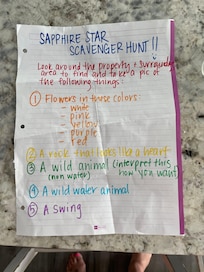 SAPPHIRE STAR
SCAVENGER HUNT!!
Look around the property + surrounding
area to find and take a pic of
the following things:
① Flowers in these colors:
- white
- pink
- yellow
- purple
- red
② A rock that looks like a heart
③ A wild animal (interpret this
(non water) how you want)
④ A wild water animal
⑤ A Swing